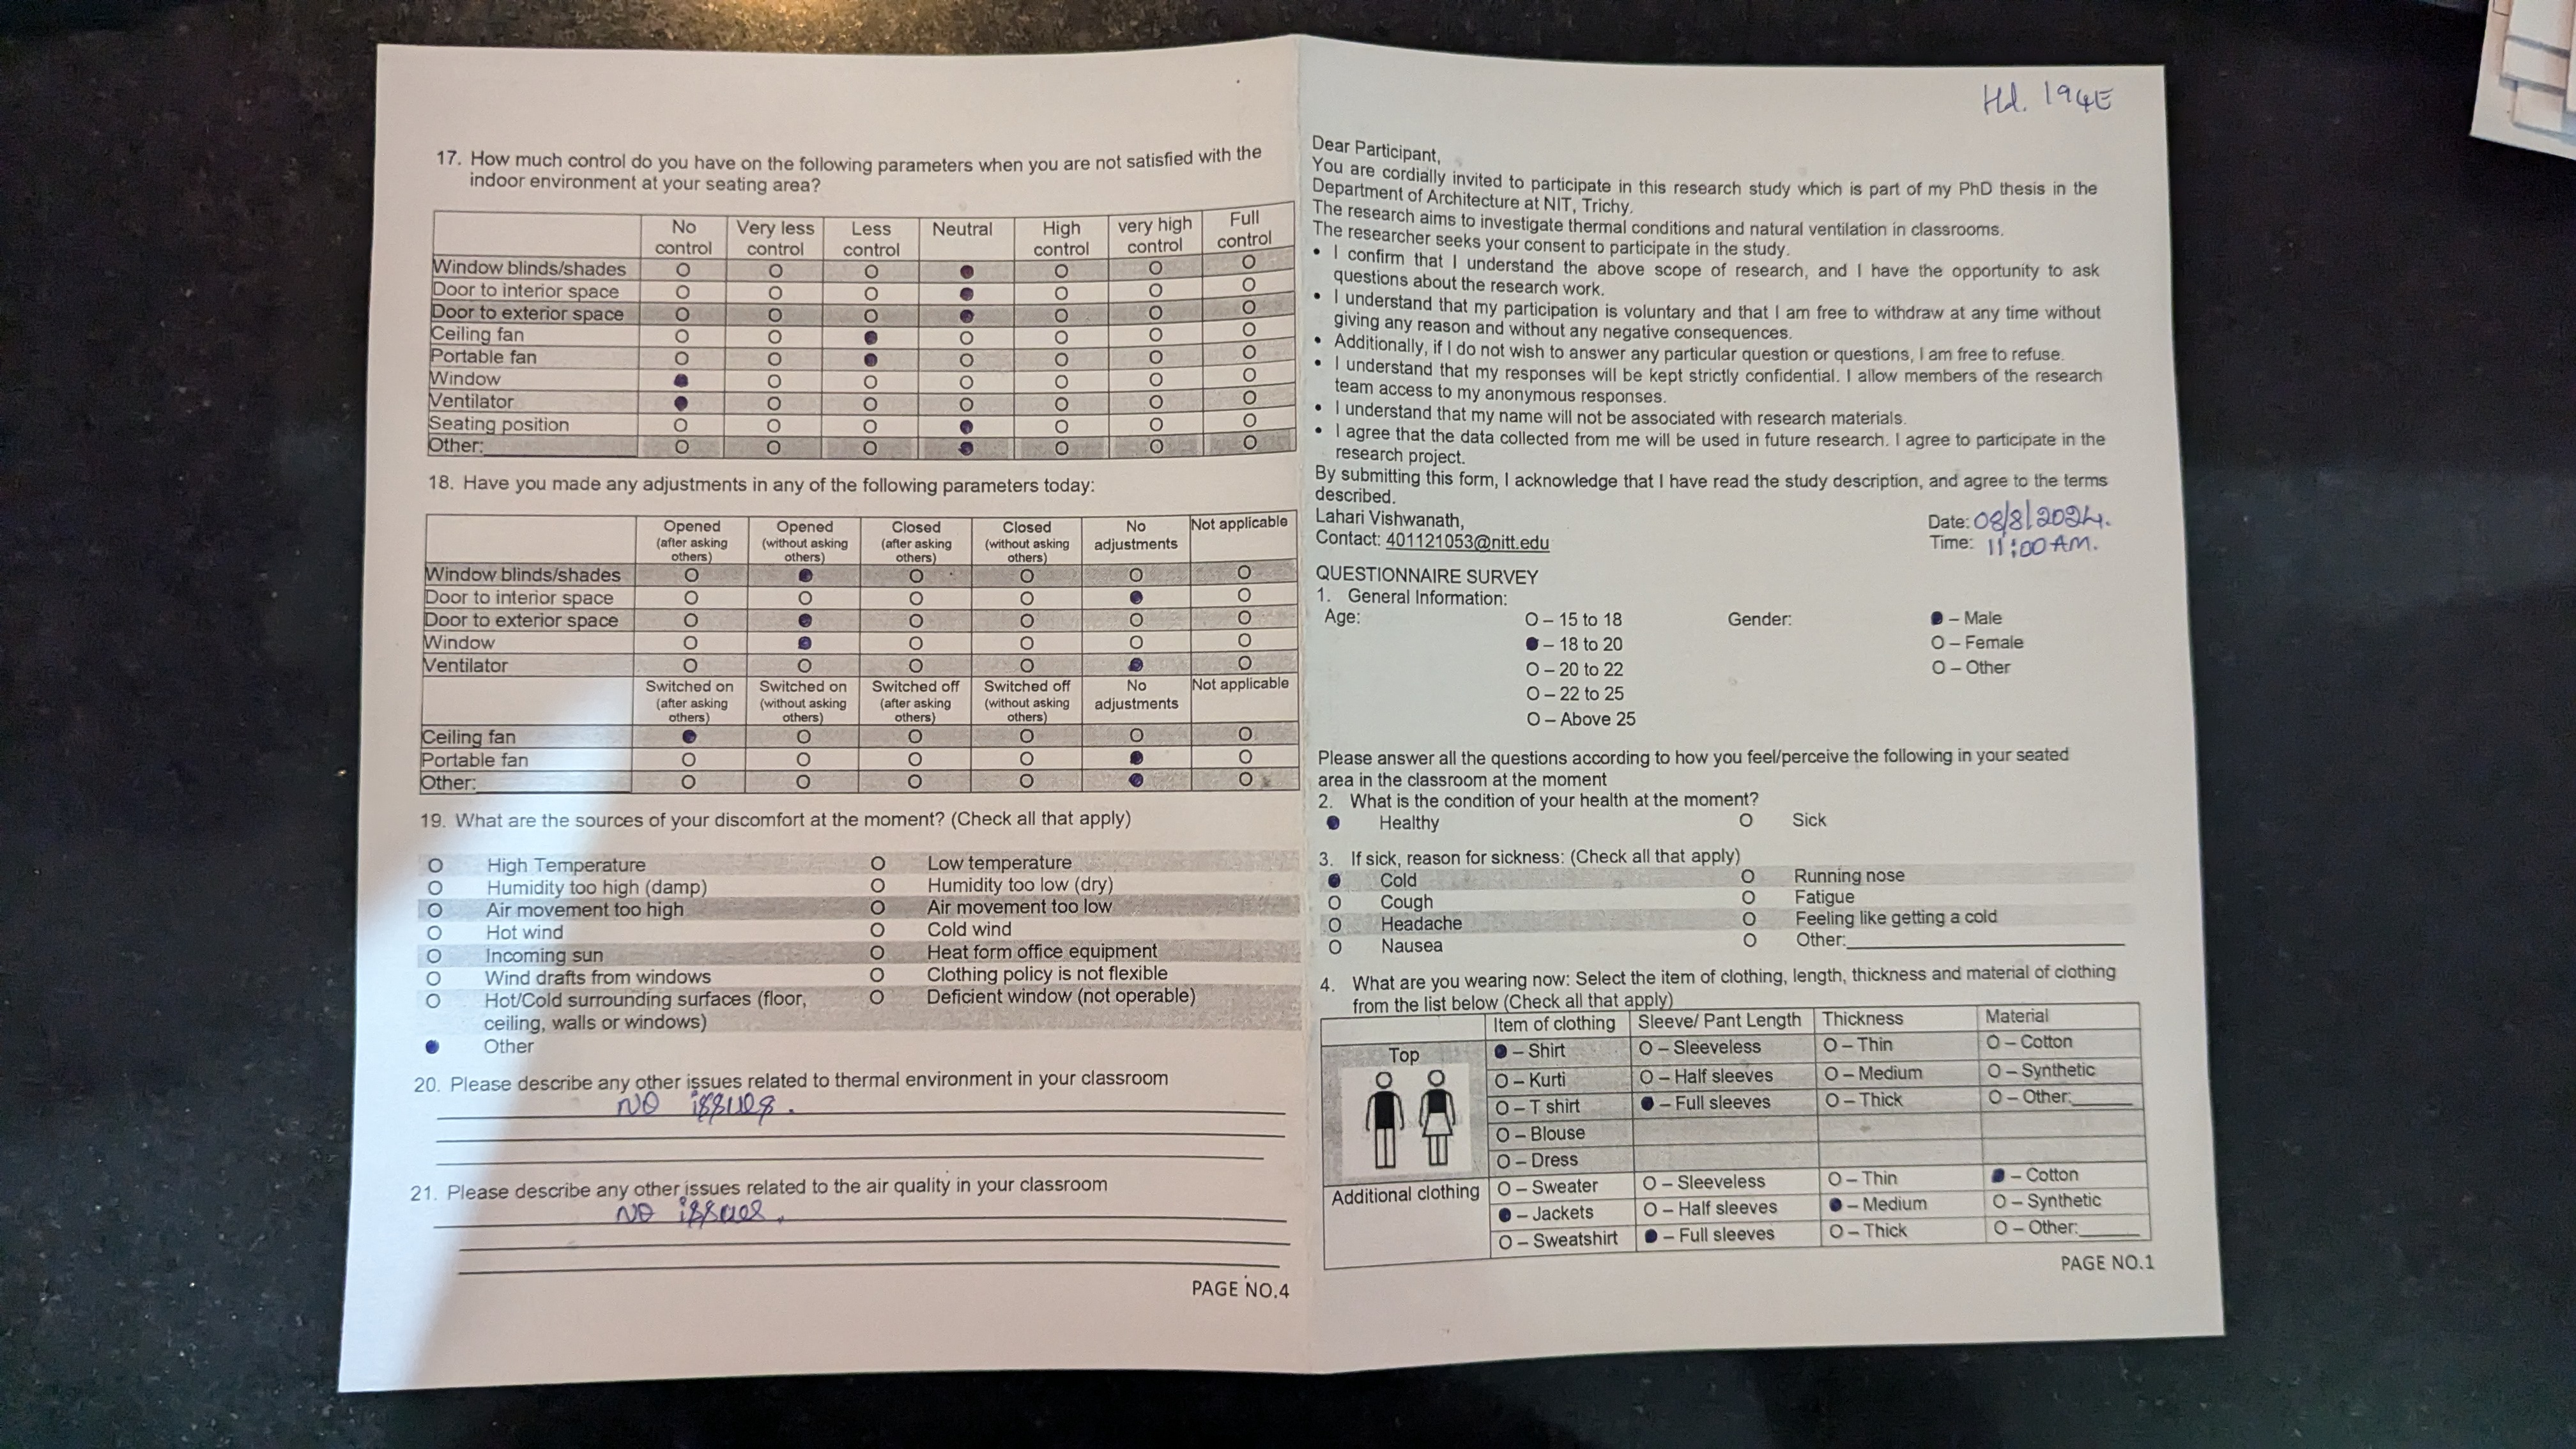 17. How much control do you have on the following parameters when you are not satisfied with the
indoor environment at your seating area?
No control Very less control Less control Neutral High control very high control Full control
Window blinds/shades O O O ● O O O
Door to interior space O O O ● O O O
Door to exterior space O O O ● O O O
Ceiling fan O O ● O O O O
Portable fan O O ● O O O O
Window ● O O O O O O
Ventilator ● O O O O O O
Seating position O O O ● O O O
Other: O O O ● O O O
18. Have you made any adjustments in any of the following parameters today:
Opened (after asking others) Opened (without asking others) Closed (after asking others) Closed (without asking others) No adjustments Not applicable
Window blinds/shades O ● O O O O
Door to interior space O O O O ● O
Door to exterior space O ● O O O O
Window O ● O O O O
Ventilator O O O O ● O
Switched on (after asking others) Switched on (without asking others) Switched off (after asking others) Switched off (without asking others) No adjustments Not applicable
Ceiling fan ● O O O O O
Portable fan O O O O ● O
Other: O O O O ● O
19. What are the sources of your discomfort at the moment? (Check all that apply)
O High Temperature O Low temperature
O Humidity too high (damp) O Humidity too low (dry)
O Air movement too high O Air movement too low
O Hot wind O Cold wind
O Incoming sun O Heat form office equipment
O Wind drafts from windows O Clothing policy is not flexible
O Hot/Cold surrounding surfaces (floor, O Deficient window (not operable)
ceiling, walls or windows)
● Other
20. Please describe any other issues related to thermal environment in your classroom
NO issues.
21. Please describe any other issues related to the air quality in your classroom
NO issues.
PAGE NO.4
Hd. 194E
Dear Participant,
You are cordially invited to participate in this research study which is part of my PhD thesis in the
Department of Architecture at NIT, Trichy.
The research aims to investigate thermal conditions and natural ventilation in classrooms.
The researcher seeks your consent to participate in the study.
• I confirm that I understand the above scope of research, and I have the opportunity to ask
questions about the research work.
• I understand that my participation is voluntary and that I am free to withdraw at any time without
giving any reason and without any negative consequences.
• Additionally, if I do not wish to answer any particular question or questions, I am free to refuse.
• I understand that my responses will be kept strictly confidential. I allow members of the research
team access to my anonymous responses.
• I understand that my name will not be associated with research materials.
• I agree that the data collected from me will be used in future research. I agree to participate in the
research project.
By submitting this form, I acknowledge that I have read the study description, and agree to the terms
described.
Lahari Vishwanath, Date: 08/8/2024.
Contact: 401121053@nitt.edu Time: 11:00 AM.
QUESTIONNAIRE SURVEY
1. General Information:
Age: O – 15 to 18 Gender: ● – Male
● – 18 to 20 O – Female
O – 20 to 22 O – Other
O – 22 to 25
O – Above 25
Please answer all the questions according to how you feel/perceive the following in your seated
area in the classroom at the moment
2. What is the condition of your health at the moment?
● Healthy O Sick
3. If sick, reason for sickness: (Check all that apply)
● Cold O Running nose
O Cough O Fatigue
O Headache O Feeling like getting a cold
O Nausea O Other:
4. What are you wearing now: Select the item of clothing, length, thickness and material of clothing
from the list below (Check all that apply)
Item of clothing Sleeve/ Pant Length Thickness Material
Top ● – Shirt O – Sleeveless O – Thin O – Cotton
O – Kurti O – Half sleeves O – Medium O – Synthetic
O – T shirt ● – Full sleeves O – Thick O – Other:
O – Blouse
O – Dress
Additional clothing O – Sweater O – Sleeveless O – Thin ● – Cotton
● – Jackets O – Half sleeves ● – Medium O – Synthetic
O – Sweatshirt ● – Full sleeves O – Thick O – Other:
PAGE NO.1